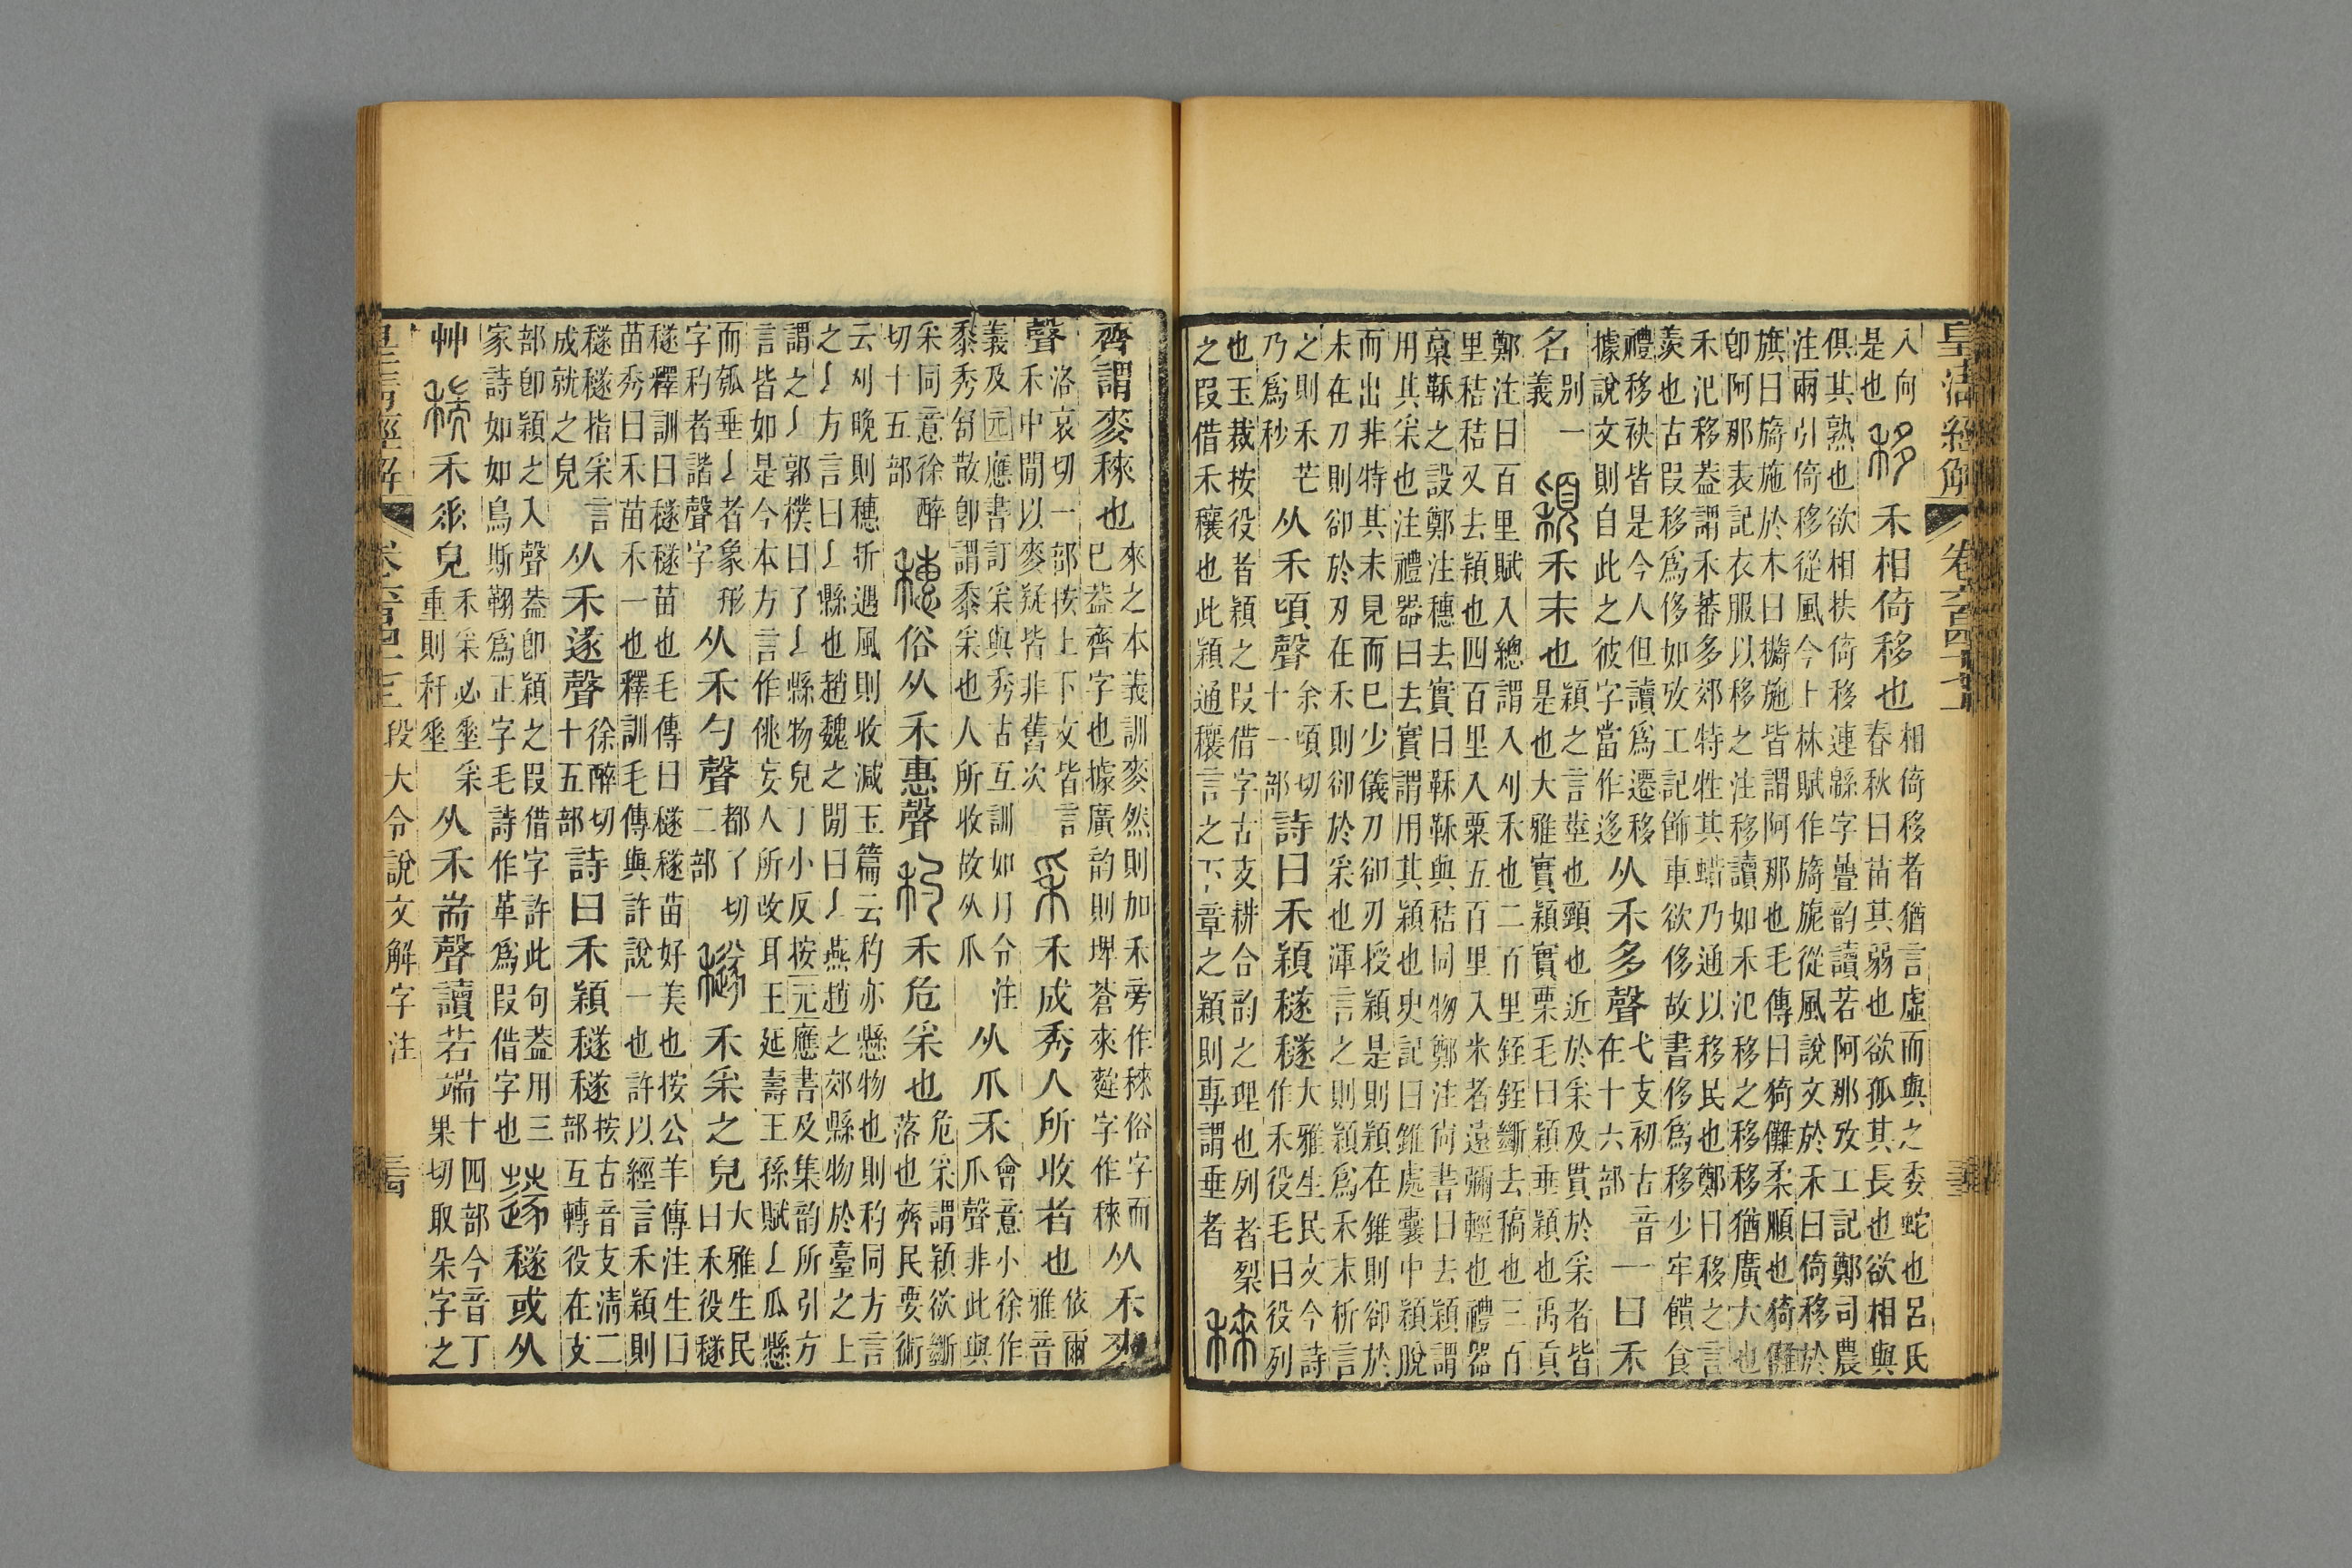 皇清經解 卷六百四十七上
入向
是也
移 禾相倚移也
相倚移者猶言虛而與之委蛇也呂氏
春秋曰苗其弱也欲孤其長也欲相與
俱其熟也欲相扶倚移連緜字曡韵讀若阿那攷工記鄭司農
注兩引倚移從風今上林賦作旖旎從風說文於禾曰倚移於
旗曰旖施於木曰檹施皆謂阿那也毛傳曰猗儺柔順也猗儺
卽阿那表記衣服以移之注移讀如禾汜移之移移猶廣大也
禾汜移葢謂禾蕃多郊特牲其蜡乃通以移民也鄭曰移之言
羨也古叚移爲侈如攷工記飾車欲侈故書侈爲移少牢饋食
禮移袂皆是今人但讀爲遷移
據說文則自此之彼字當作迻
从禾多聲
弋支初古音
在十六部
一曰禾
名
別一
義
穎 禾末也
穎之言莖也頸也近於采及貫於采者皆
是也大雅實穎實栗毛曰穎垂穎也禹貢
鄭注曰百里賦入總謂入刈禾也二百里銍銍斷去稿也三百
里秸秸又去穎也四百里入粟五百里入米者遠彌輕也禮器
藁鞂之設鄭注穗去實曰鞂鞂與秸同物鄭注尙書曰去穎謂
用其采也注禮器曰去實謂用其穎也史記曰錐處囊中穎脫
而出非特其末見而巳少儀刀卻刃授穎是則穎在錐則卻於
末在刀則卻於刃在禾則卻於采也渾言之則穎爲禾末析言
之則禾芒
乃爲秒
从禾頃聲
余頃切
十一部
詩曰禾穎穟穟
大雅生民文今詩
作禾役毛曰役列
也玉裁按役者穎之叚借字古支耕合韵之理也列者裂
之叚借禾穰也此穎通穰言之下章之穎則專謂垂者
䅘
齊謂麥䅘也
來之本義訓麥然則加禾旁作䅘俗字而
巳葢齊字也據廣韵則埤蒼來麰字作䅘
从禾來
聲
洛哀切一部按上下文皆言
禾中閒以麥疑皆非舊次
采 禾成秀人所收者也
依爾
雅音
義及元應書訂采與秀古互訓如月令注
黍秀舒散卽謂黍采也人所收故从爪
从爪禾
會意小徐作
爪聲非此與
采同意徐醉
切十五部
穗 俗从禾惠聲
杓 禾危采也
危采謂穎欲斷
落也齊民要術
云刈晚則穗折遇風則收減玉篇云杓亦懸物也則杓同方言
之𠄌方言曰𠄌縣也趙魏之閒曰𠄌燕趙之郊縣物於臺之上
謂之𠄌郭樸曰了𠄌縣物皃丁小反按元應書及集韵所引方
言皆如是今本方言作佻妄人所改耳王延壽王孫賦𠄌瓜懸
而瓠垂𠄌者象形
字杓者諧聲字
从禾勺聲
都了切
二部
穟 禾采之皃
大雅生民
曰禾役穟
穟釋訓曰穟穟苗也毛傳曰穟穟苗好美也按公羊傳注生曰
苗秀曰禾禾苗一也釋訓毛傳與許說一也許以經言禾穎則
穟穟指采言
成就之皃
从禾遂聲
徐醉切
十五部
詩曰禾穎穟穟
按古音支淸二
部互轉役在支
部卽穎之入聲葢卽穎之叚借字許此句葢用三
家詩如如鳥斯翱爲正字毛詩作革爲叚借字也
䔹 穟或从
艸
䅐 禾𠂹皃
禾采必𡍮
重則秆𡍮
采
从禾耑聲讀若端
十四部今音丁
果切取朵字之
皇清經解 卷六百四十七上 段大令說文解字注